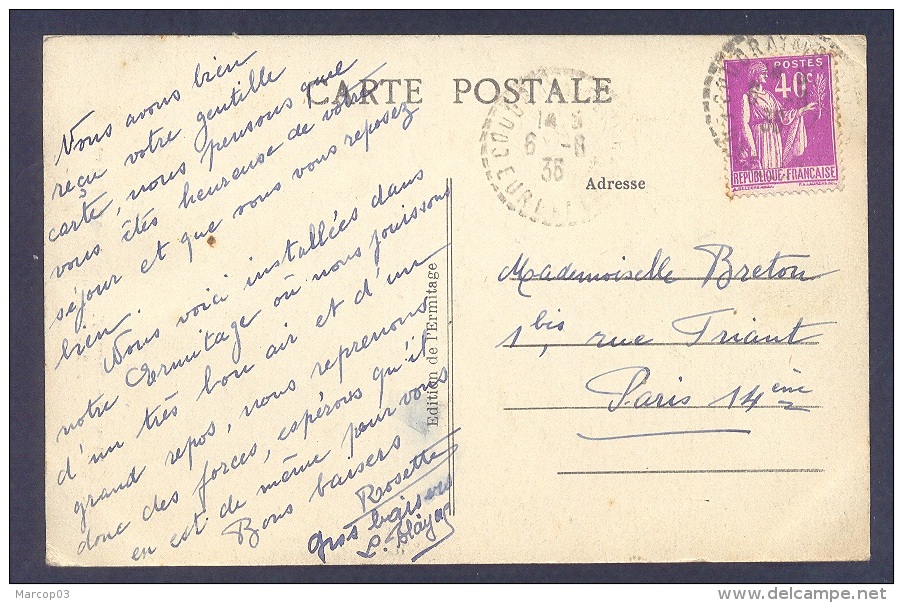 CARTE POSTALE
Nous avons bien
reçu votre gentille
carte, nous pensons que
vous êtes heureuse de votre
séjour et que vous vous reposez
bien.
Nous voici installées dans
notre Ermitage où nous jouissons
d'un très bon air et d'un
grand repos, nous reprenons
donc des forces, espérons qu'il
en est de même pour vous
Bons baisers
Rosette
gros baisers
L.
Edition de l'Ermitage
6 -8
35
POSTES
40c
REPUBLIQUE-FRANCAISE
Adresse
Mademoiselle Breton
1 bis, rue Friant
Paris 14ème
Marcop03
www.delcampe.net